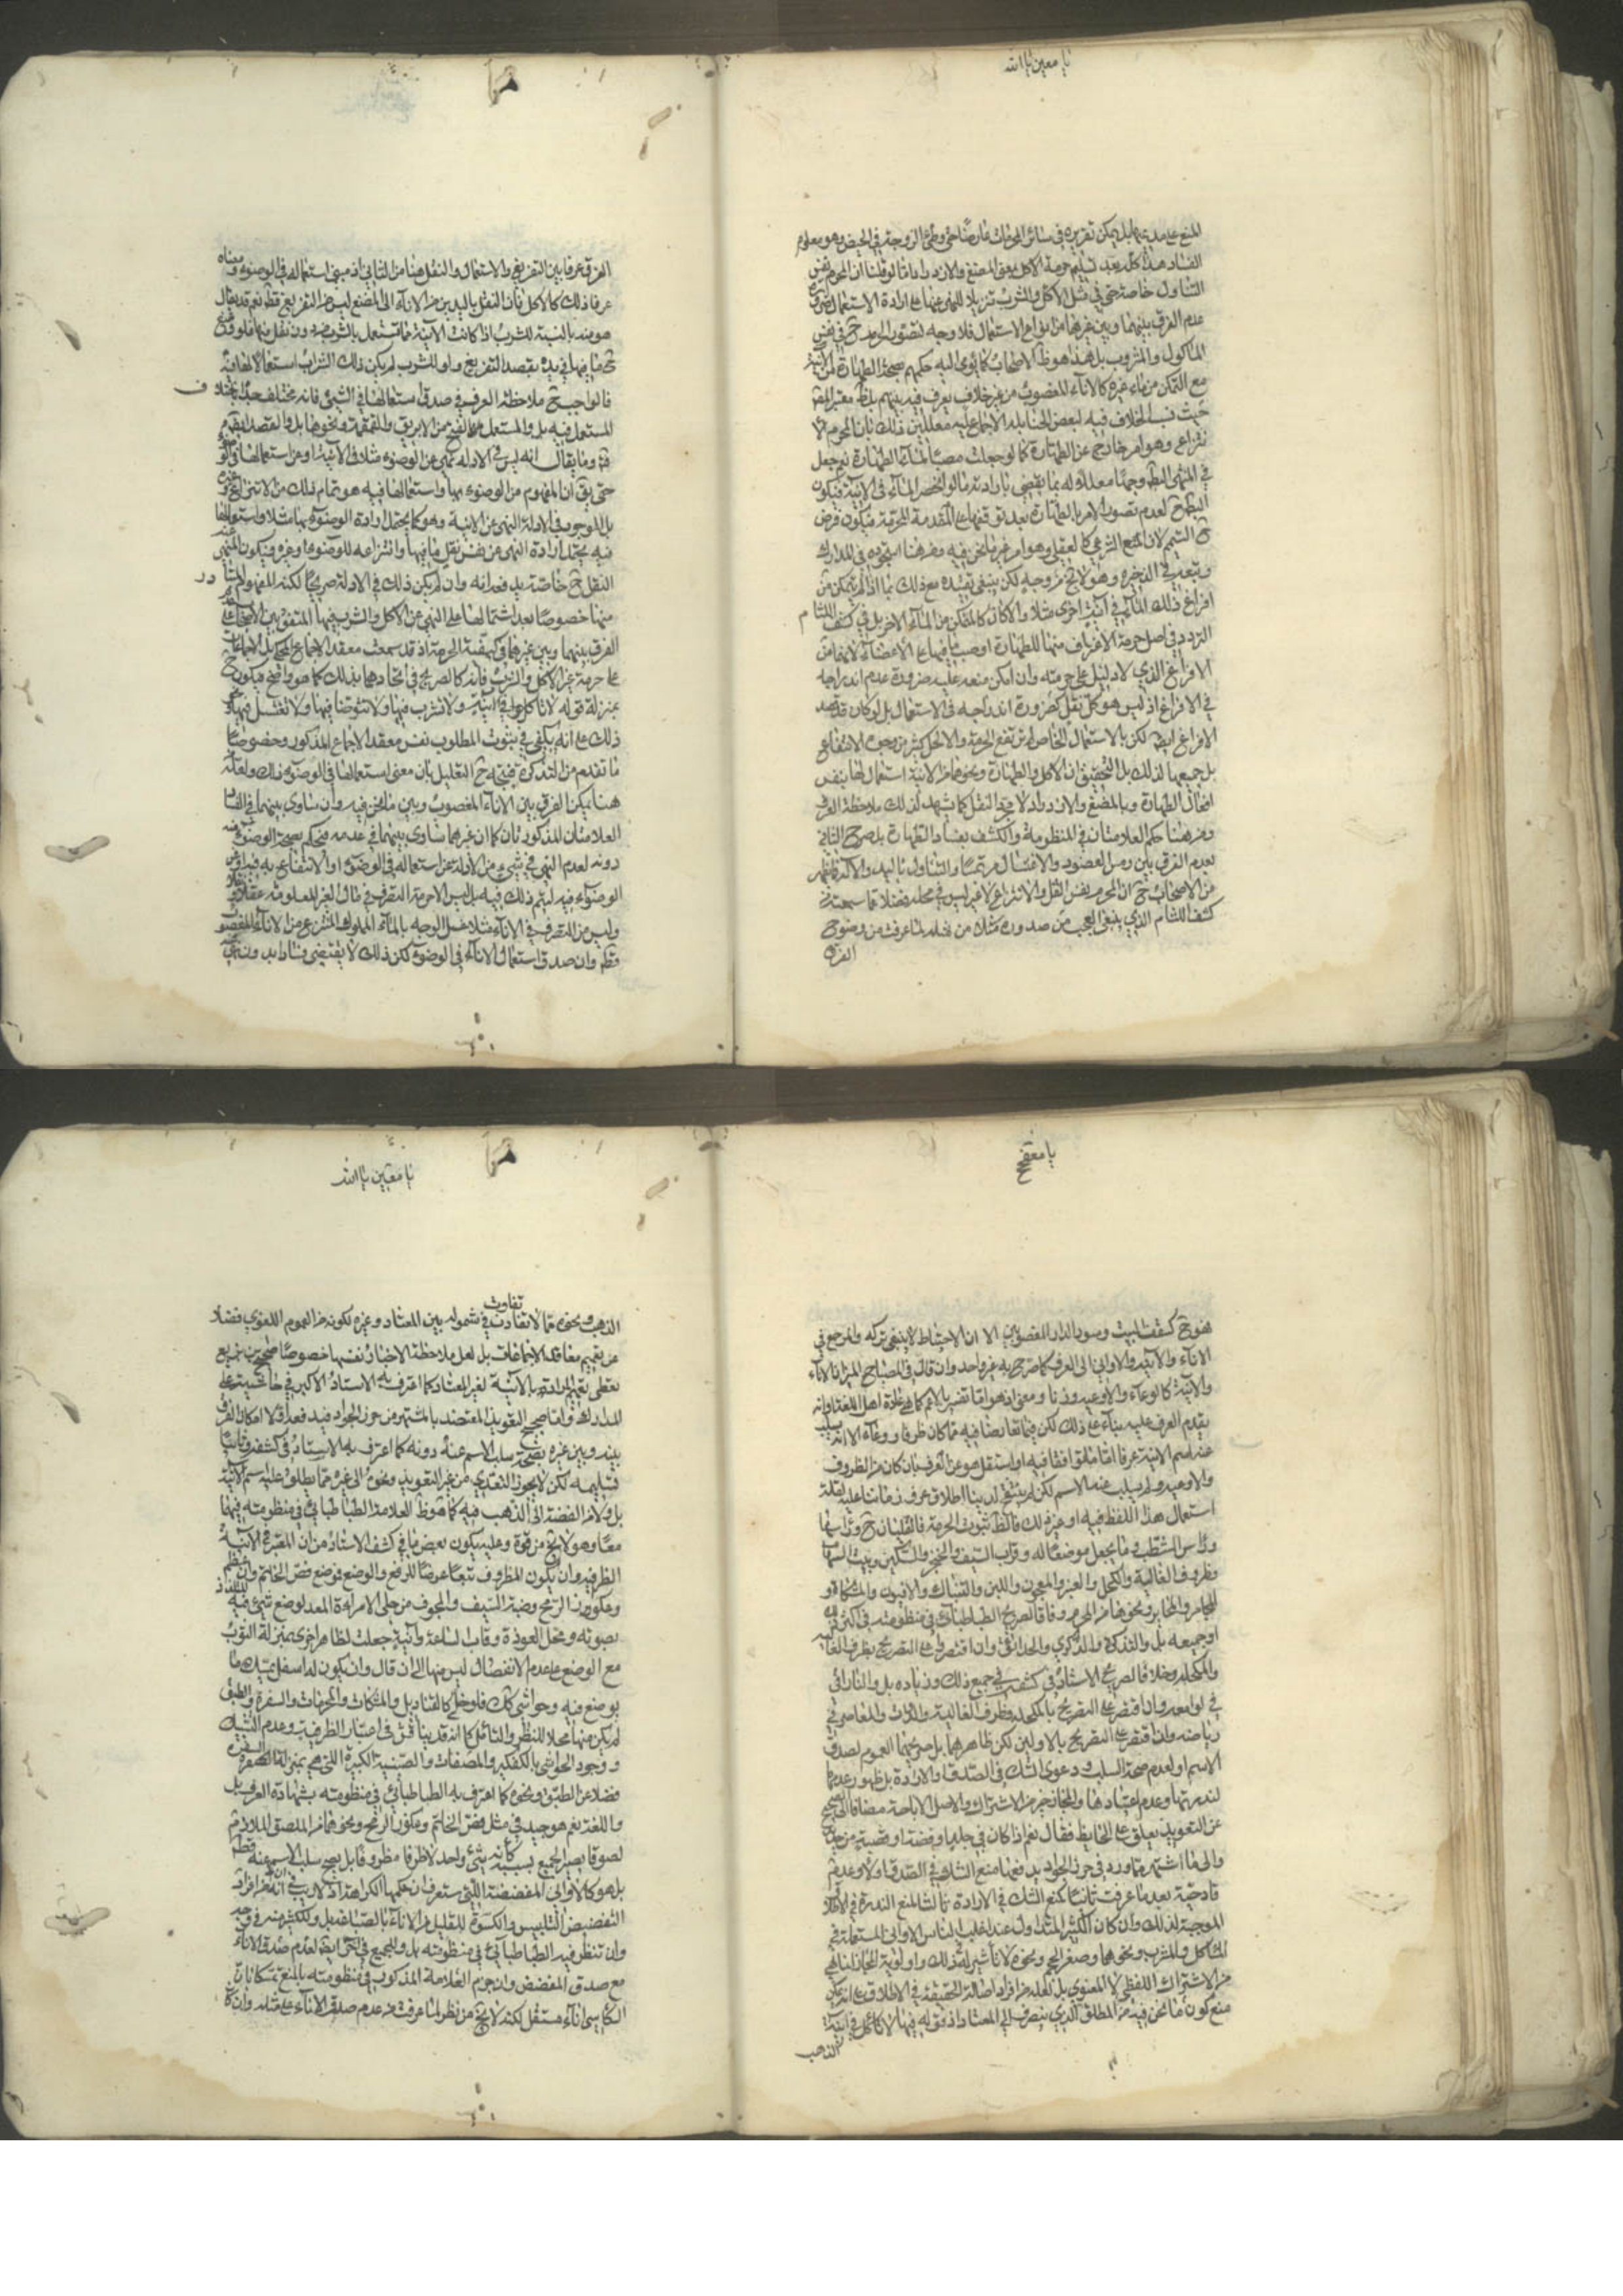 يا معين يا الله
المنع على مدعيها بل يمكن تقريره في سائر المحرمات عارضا حتى وطئ الزوجة في الحيض وهو معلوم
الفساد هذا كله بعد تسليم حرمة الاكل بمعنى المضغ والازدراد اما لو قلنا ان المحرم نفس
التناول خاصة حتى في مثل الاكل والشرب تنزيلا للنهي عنهما على ارادة الاستعمال
عدم الفرق بينهما وبين غيرهما من انواع الاستعمال فلا وجه لتصور الحرمة ح في نفس
الماكول والمشروب بل هذا هو ظ الاصحاب كما يومى اليه حكمهم بصحة الطهارة من الآنية
مع التمكن من ماء غيره كالاناء المغصوب من غير خلاف يعرف فيه بينهم بل ظ معتبر المص
حيث نسب الخلاف فيه لبعض الحنابلة الاجماع عليه معللين ذلك بان المحرم الا
نتزاع وهو امر خارج عن الطهارة كما لو جعلت مصبا لماء الطهارة نعم جعل
في المنتهى البط وجها معللا له بما يقضي بارادته ما لو انحصر الماء في الآنية فيكون
البط ح لعدم تصور الامر بالطهارة بعد توقفها على المقدمة المحرمة فيكون فرضه
ح التيمم لان المنع الشرعي كالعقلي وهو امر غير ما نحن فيه ومن هنا استجوده في المدارك
وتبعه في الذخيرة وهو لا يخ من وجه لكن ينبغي تقييده مع ذلك بما اذا لم يتمكن من
افراغ ذلك الماء في آنية اخرى مثلا والا كان كالمتمكن من الماء الاخر بل في كشف اللثام
التردد في اصل حرمة الاغتراف منها للطهارة او صب ما فيها على الاعضاء لانهما من
الافراغ الذي لا دليل على حرمته وان امكن منعه عليه ضرورة عدم اندراجه
في الافراغ اذ ليس هو كل نقل كضرورة اندراجه في الاستعمال بل لو كان قد قصد
الافراغ ايضا لكن بالاستعمال الخاص لم ترتفع الحرمة والا لحل كثير من وجوه الانتفاع
بل جميعها لذلك بل التحقيق ان الاكل والطهارة ونحوهما من الآنية استعمال لها بنفس
افعال الطهارة وبالمضغ والازدراد لا مجرد النقل كما يشهد لذلك ملاحظة العرف
ومن هنا حكم العلامتان في المنظومة والكشف بفساد الطهارة بل صرح الثاني
بعدم الفرق بين رمس العضو والاغتسال مرتمسا والتناول باليد والآلة فما ظهر
من الاصحاب ح ان المحرم نفس النقل والانتزاع لا غير ليس في محله فضلا عما سمعته من
كشف اللثام الذي ينبغي العجب من صدوره مثله من مثله لما عرفت من وضوح
الفرق
الفرق عرفا بين التفريغ والاستعمال والنقل هنا من الثاني اذ مبنى استعماله في الوضوء ومعناه
عرفا ذلك كالاكل فان النقل باليدين من الاناء الى المضغ ليس من التفريغ قطعا نعم قد يقال
هو منه بالنسبة للشرب اذا كانت الآنية مما تستعمل بالشرب منه دون نقل منها فلو فرغ
ح ما فيها في يده بقصد التفريغ ولو للشرب لم يكن ذلك الشراب استعمالا لها فانه
فالواجب ح ملاحظة العرف في صدق استعمالها في الشيء فانه مختلف جدا باختلاف
المستعمل فيه بل والمستعمل من الابريق والقمقمة ونحوها بل والقصد
وما يقال انه ليس في الادلة نهي عن الوضوء مثلا في الآنية او عن استعمالها في الو
حتى يق ان المفهوم من الوضوء بها واستعمالها فيه هو تمام ذلك من الانتزاع وغيره
بل الموجود في الادلة النهي عن الآنية وهو كما يحتمل ارادة الوضوء بها مثلا واستعمالها
فيه يحتمل ارادة النهي عن نفس نقل ما فيها وانتزاعه للوضوء او غيره فيكون المنهي عنه
النقل ح خاصة يدفعه انه وان لم يكن ذلك في الادلة صريحا لكنه المفهوم المتبادر
منها خصوصا بعد اشتمالها على النهي عن الاكل والشرب فيها المتفق بين الاصحاب على عدم
الفرق بينهما وبين غيرهما في كيفية الحرمة اذ قد سمعت معقد الاجماع المحكي بل الاجماعات
على حرمة غير الاكل والشرب فانه كالصريح في اتحادهما بذلك كما هو واضح فيكون ح
بمنزلة قوله لا تاكل في آنية ولا تشرب فيها ولا تتوضا فيها ولا تغتسل فيها ونحو
ذلك على انه يكفي في ثبوت المطلوب نفس معقد الاجماع المذكور وخصوصا
ما تقدم من التذكرة فيتجه ح التعليل بان معنى استعمالها في الوضوء ذلك ولعله
هنا يمكن الفرق بين الاناء المغصوب وبين ما نحن فيه وان ساوى بينهما في الفساد
العلامتان المذكورتان كما ان غيرهما ساوى بينهما في عدمه فحكم بصحة الوضوء منه
دونه لعدم النهي في شيء من الادلة عن استعماله في الوضوء او الانتفاع به فيه او عن
الوضوء فيه ليتم ذلك فيه بل ليس الا حرمة التصرف في مال الغير المعلومة عقلا ونقلا
وليس من التصرف في الاناء مثلا غسل الوجه بالماء المملوك المنتزع من الاناء المغصوب
قطعا وان صدق استعمال الاناء في الوضوء لكن ذلك لا يقتضي فسادا بعد
يا مفتح
هو في كشفه البيت وسور الدار المغصوبين الا ان الاحتياط لا ينبغي تركه والمرجع في
الاناء والآنية والاواني الى العرف كما صرح به غير واحد وان قال في المصباح المنير ان الاناء
والآنية كالوعاء والاوعية وزنا ومعنى اذ هو اما تفسير بالاعم كما هي عادة اهل اللغة او انه
يقدم العرف عليه بناء على ذلك لكن فيما تعارضا فيه مما كان ظرفا ووعاء الا انه يسلب
عنه اسم الآنية عرفا اما ما لم توافقا فيه او استقل هو عن العرف بان كان من الظروف
والاوعية ولم يسلب عنه الاسم لكن لم يتنقح لدينا اطلاق عرف زماننا عليه لقلة
استعمال هذا اللفظ فيه او غير ذلك فالظ ثبوت الحرمة فالقليان ح وراسها
وراس الشطب وما يجعل موضعا له وقراب السيف والخنجر والسكين وبيت السهام
وظروف الغالية والكحل والعنبر والمعجون واللبن والتنباك والافيون والمشكاة و
المجامر والمحابر ونحوها من المحرم وفاقا لصريح الطباطبائي في منظومته في اكثر ذلك
او جميعه بل والتذكرة والذكرى والحدائق وان اقتصروا على التصريح بظرف الغالية
والمكحلة وخلافا لصريح الاستاذ في كشفه في جميع ذلك وزيادة بل والنراقي
في لوامعه وان اقتصر على التصريح بالمكحلة وظرف الغالية والدواة والمقاصر في
رياضه وان اقتصر على التصريح بالاولين لكن ظاهرهما بل صريحهما العموم لصدق
الاسم او لعدم صحة السلب ودعوى الشك في الصدق او الارادة بل ظهور عدمها
لندرتها وعدم اعتيادها والمجاز خير من الاشتراك والاصل الاباحة مضافا الى صحيح
عن التعويذ يعلق على الحايض فقال نعم اذا كان في جلد او فضة او قصبة من حديد
والى ما اشتهر مما ورد في حرز الجواد يدفعها منع الشك في الصدق اولا وعدم
قادحيته بعد ما عرفت ثانيا كمنع الشك في الارادة ثالثا لمنع الندرة في الافراد
الموجبة لذلك وان كان الكثير المتداول عند اغلب الناس الاواني المستعملة في
الماكل والمشرب ونحوهما وصغر الحجم ونحوه لا تاثير له في ذلك واولوية المجاز انما هي
من الاشتراك اللفظي لا المعنوي بل لعله من افراد اصالة الحقيقة في الاطلاق على انه يمكن
منع كون ما نحن فيه من المطلق الذي ينصرف الى المعتاد اذ قوله فيها لا تاكل في آنية
الذهب
يا معين يا الله
الذهب ونحوه مما لا تفاوت في شموله بين المعتاد وغيره لكونه من العموم اللغوي فضلا
عن تعميم معاقد الاجماعات بل لعل ملاحظة الاخبار نفسها خصوصا صحيح بن بزيع
تعطي تعميم المراد بالآنية لغير المعتاد كما اعترف به الاستاذ الاكبر في حاشيته على
المدارك واما صحيح التعويذ المعتضد بالمشتهر من حرز الجواد فيدفعه اولا امكان الفرق
بينه وبين غيره بصحة سلب الاسم عنه دونه كما اعترف به الاستاذ في كشفه وثانيا
تسليمه لكن لا يجوز التعدي من غير التعويذ ونحوه الى غيره مما يطلق عليه اسم الآنية
بل ولا من الفضة الى الذهب فيه كما هو ظ العلامة الطباطبائي في منظومته فيهما
معا وهو لا يخ من قوة وعليه يكون بعض ما في كشف الاستاذ من ان المعتبر في الآنية
الظرفية وان يكون المظروف معرضا للرفع والوضع فموضع فص الخاتم
وعكوز الرمح وضبة السيف والمجوف من حلي الامراة المعد لوضع شيء فيه للتلذذ
بصوته ومحل العوذة وقاب الساعة وآنية جعلت لظاهر اخرى بمنزلة الثوب
مع الوضع على عدم الانفصال ليس منها الى ان قال وان يكون لها اسفل يمسك ما
يوضع فيه وحواشي كك فلو خلا كالقناديل والمشكاة والمجرمات والسفرة والطبق
لم يكن منها محلا للنظر والتامل كما انه قد يناقش في اعتبار الظرفية وعدم التشبيك
ووجود الحواشي بالكفكير والمصفات والصينية الكبيرة التي هي بمنزلة السفرة
فضلا عن الطبق ونحوه كما اعترف به الطباطبائي في منظومته بشهادة العرف بل
واللغة نعم هو جيد في مثل فص الخاتم وعكوز الرمح ونحوهما من الملصق الملازم
لصوقا يصير الجميع بسببه كانه شيء واحد لا ظرفا ومظروفا بل يصح سلب الاسم عنه قطعا
بل هو كالاواني المفضضة التي ستعرف ان حكمها الكراهة اذ لا ريب في ان من افراد
التفضيض التلبيس والكسوة للقليل من الاناء بالصب بل وللكثير منه في وجه
وان تنظر فيه الطباطبائي في منظومته بل وللجميع في اخر ايضا لعدم صدق الاناء
مع صدق المفضض وان جزم العلامة المذكور في منظومته بالمنع تمسكا بان
الكاسي اناء مستقل لكنه لا يخ من نظر لما عرفت من عدم صدق الاناء على مثله وان كان